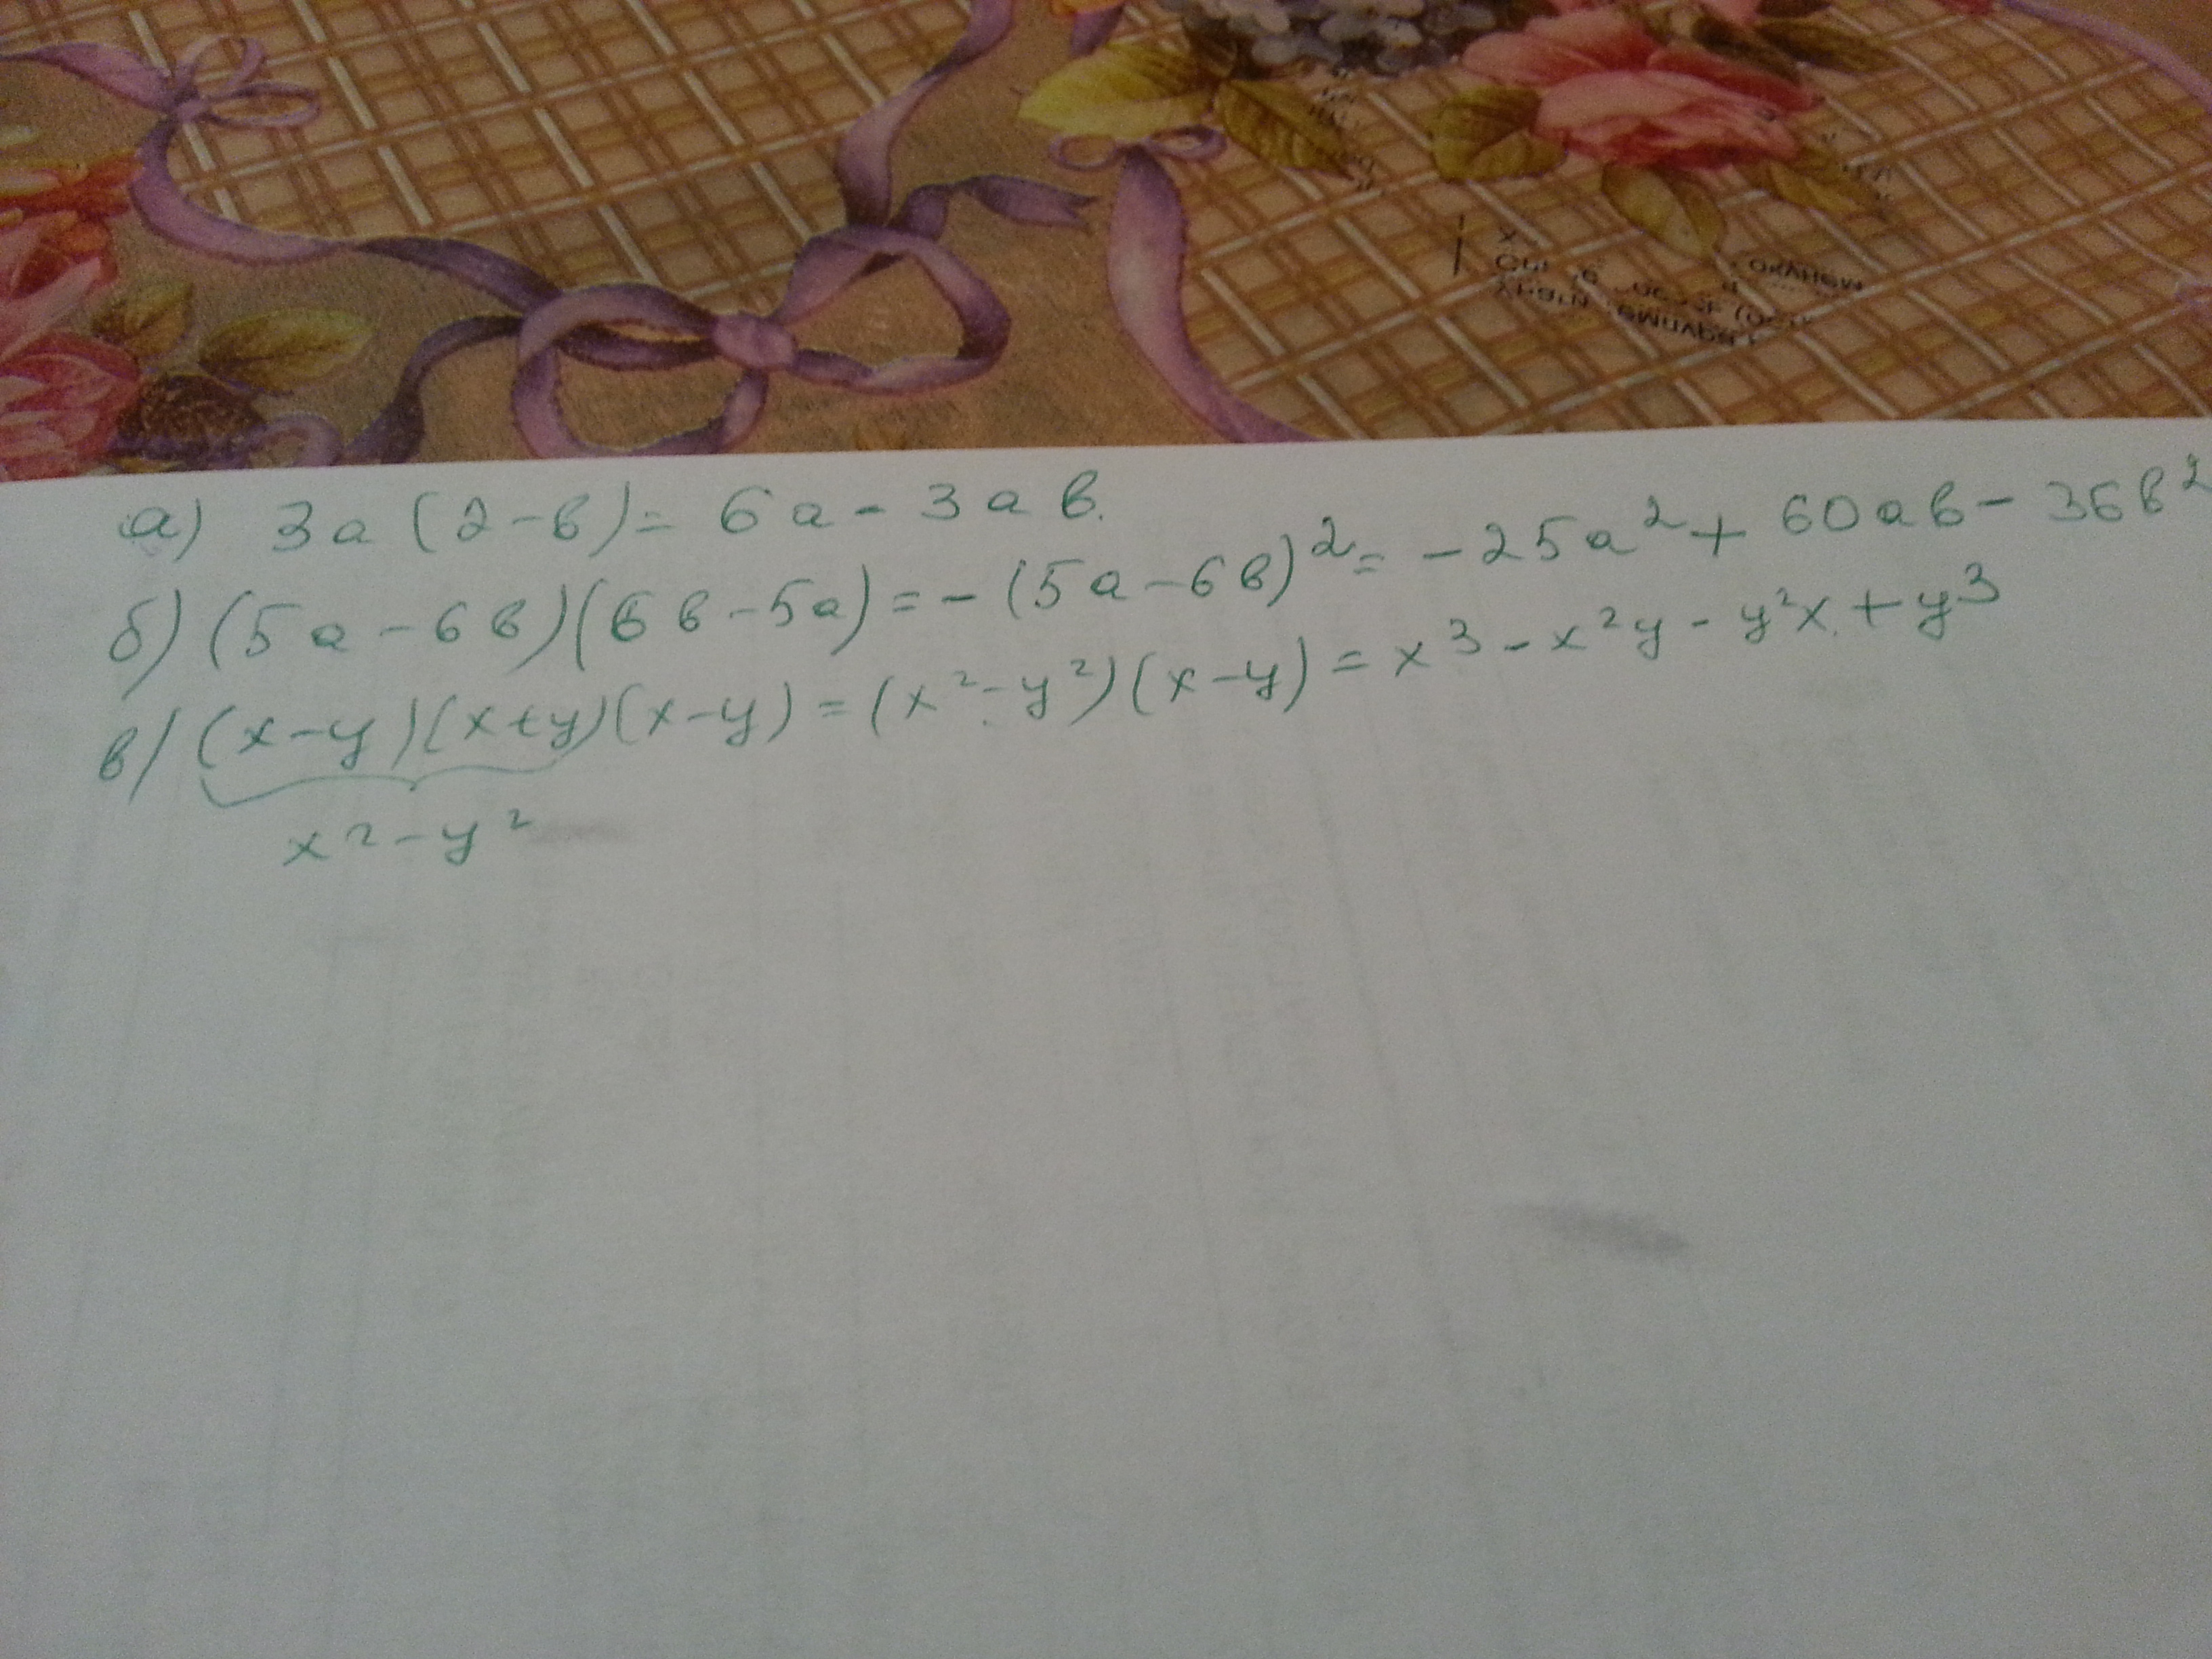 а) 3а(2-в)= 6а-3ав.
б) (5а-6в)(6в-5а)=-(5а-6в)²= -25а²+60ав-36в²
в) (x-y)(x+y)(x-y)=(x²-y²)(x-y)=x³-x²y-y²x+y³
x²-y²